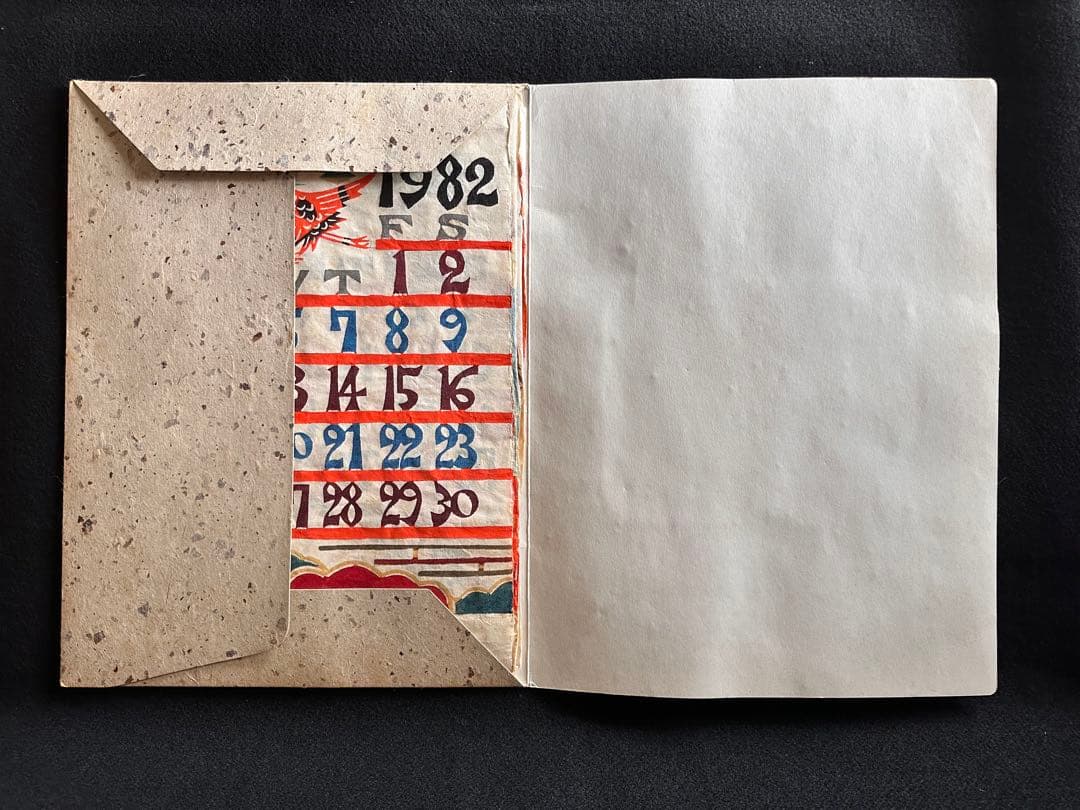 1982
F S
T 1 2
7 8 9
14 15 16
21 22 23
28 29 30